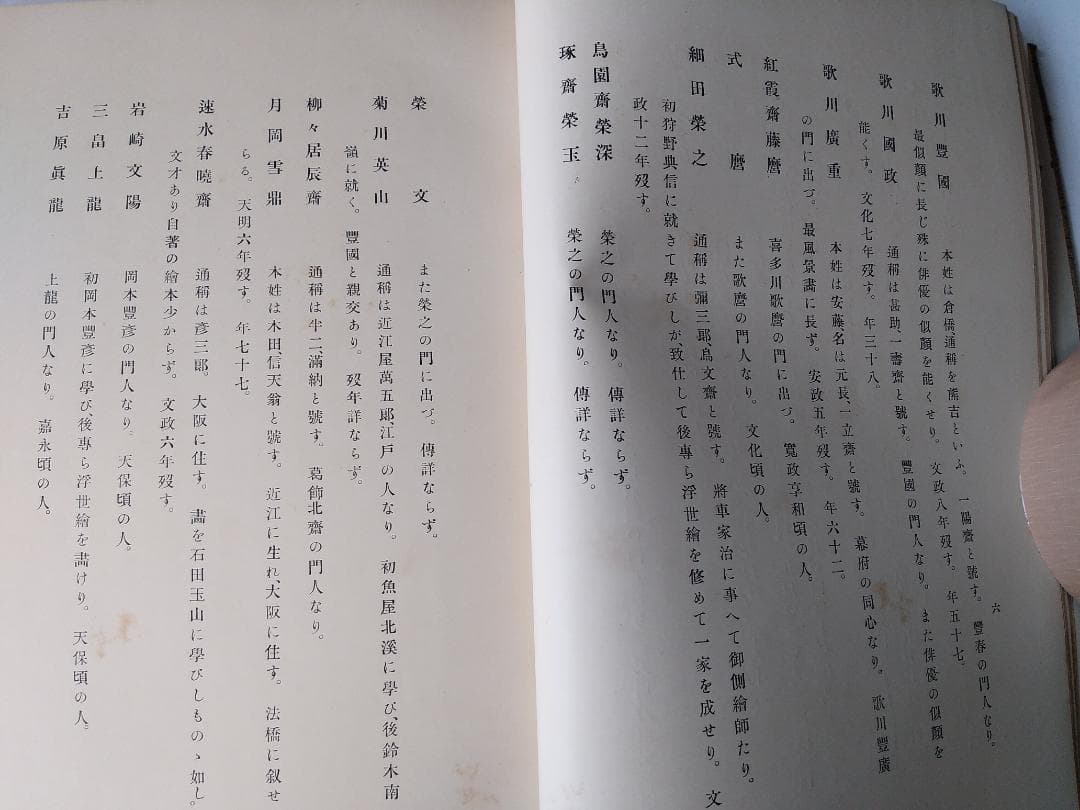 六
歌川豐國　本姓は倉橋、通稱を熊吉といふ。一陽齋と號す。豐春の門人なり。
最似顏に長じ殊に俳優の似顏を能くせり。文政八年歿す。年五十七。
歌川國政　通稱は甚助、一壽齋と號す。豐國の門人なり。また俳優の似顏を
能くす。文化七年歿す。年三十八。
歌川廣重　本姓は安藤、名は元長、一立齋と號す。幕府の同心なり。歌川豐廣
の門に出づ。最風景畵に長ず。安政五年歿す。年六十二。
紅霞齋藤麿　喜多川歌麿の門に出づ。寬政享和頃の人。
式麿　また歌麿の門人なり。文化頃の人。
細田榮之　通稱は彌三郎、鳥文齋と號す。將軍家治に事へて御側繪師たり。
初狩野典信に就きて學びしが、致仕して後專ら浮世繪を修めて一家を成せり。文
政十二年歿す。
鳥園齋榮深　榮之の門人なり。傳詳ならず。
琢齋榮玉　榮之の門人なり。傳詳ならず。
榮文　また榮之の門に出づ。傳詳ならず。
菊川英山　通稱は近江屋萬五郎、江戶の人なり。初魚屋北溪に學び、後鈴木南
嶺に就く。豐國と親交あり。歿年詳ならず。
柳々居辰齋　通稱は半二、滿納と號す。葛飾北齋の門人なり。
月岡雪鼎　本姓は木田、信天翁と號す。近江に生れ、大阪に住す。法橋に叙せ
らる。天明六年歿す。年七十七。
速水春曉齋　通稱は彥三郎。大阪に住す。畵を石田玉山に學びしものゝ如し。
文才あり自著の繪本少からず。文政六年歿す。
岩崎文陽　岡本豐彥の門人なり。天保頃の人。
三畠上龍　初岡本豐彥に學び後專ら浮世繪を畵けり。天保頃の人。
吉原眞龍　上龍の門人なり。嘉永頃の人。